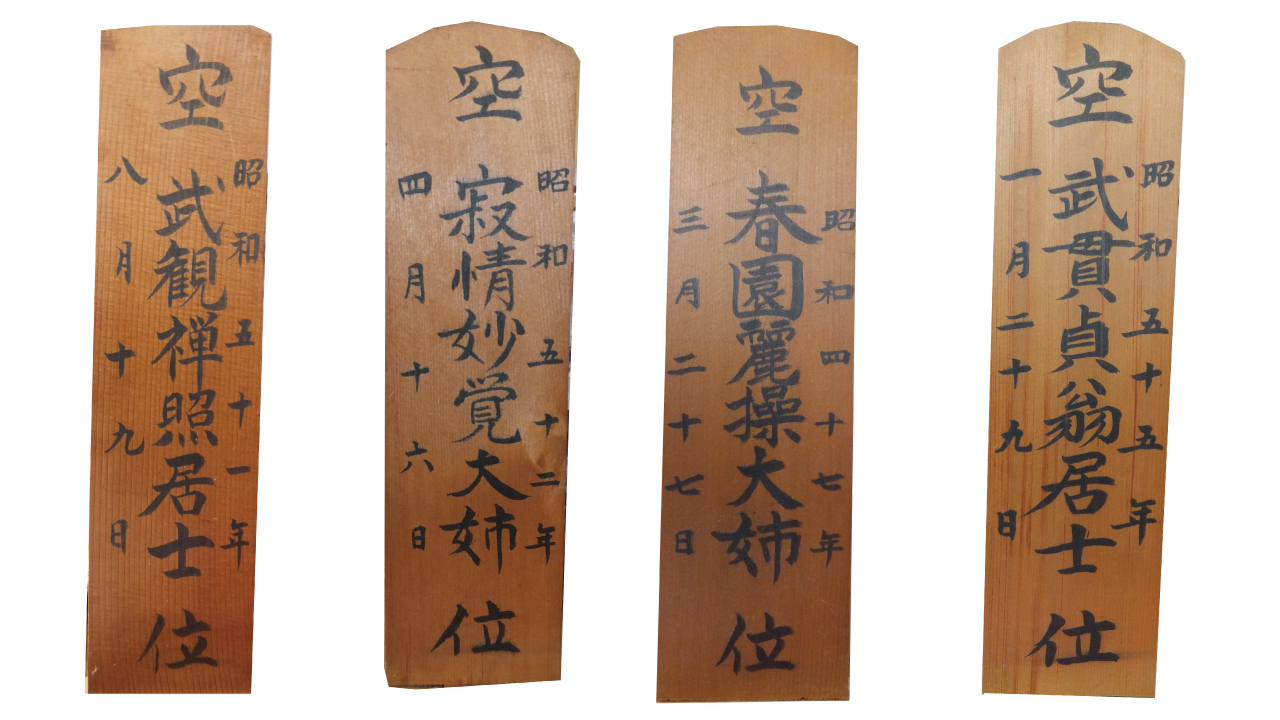 昭和五十一年
空 武観禅照居士 位
八月十九日
昭和五十二年
空 寂情妙覚大姉 位
四月十六日
昭和四十七年
空 春園麗操大姉 位
三月二十七日
昭和五十五年
空 武貫貞翁居士 位
一月二十九日